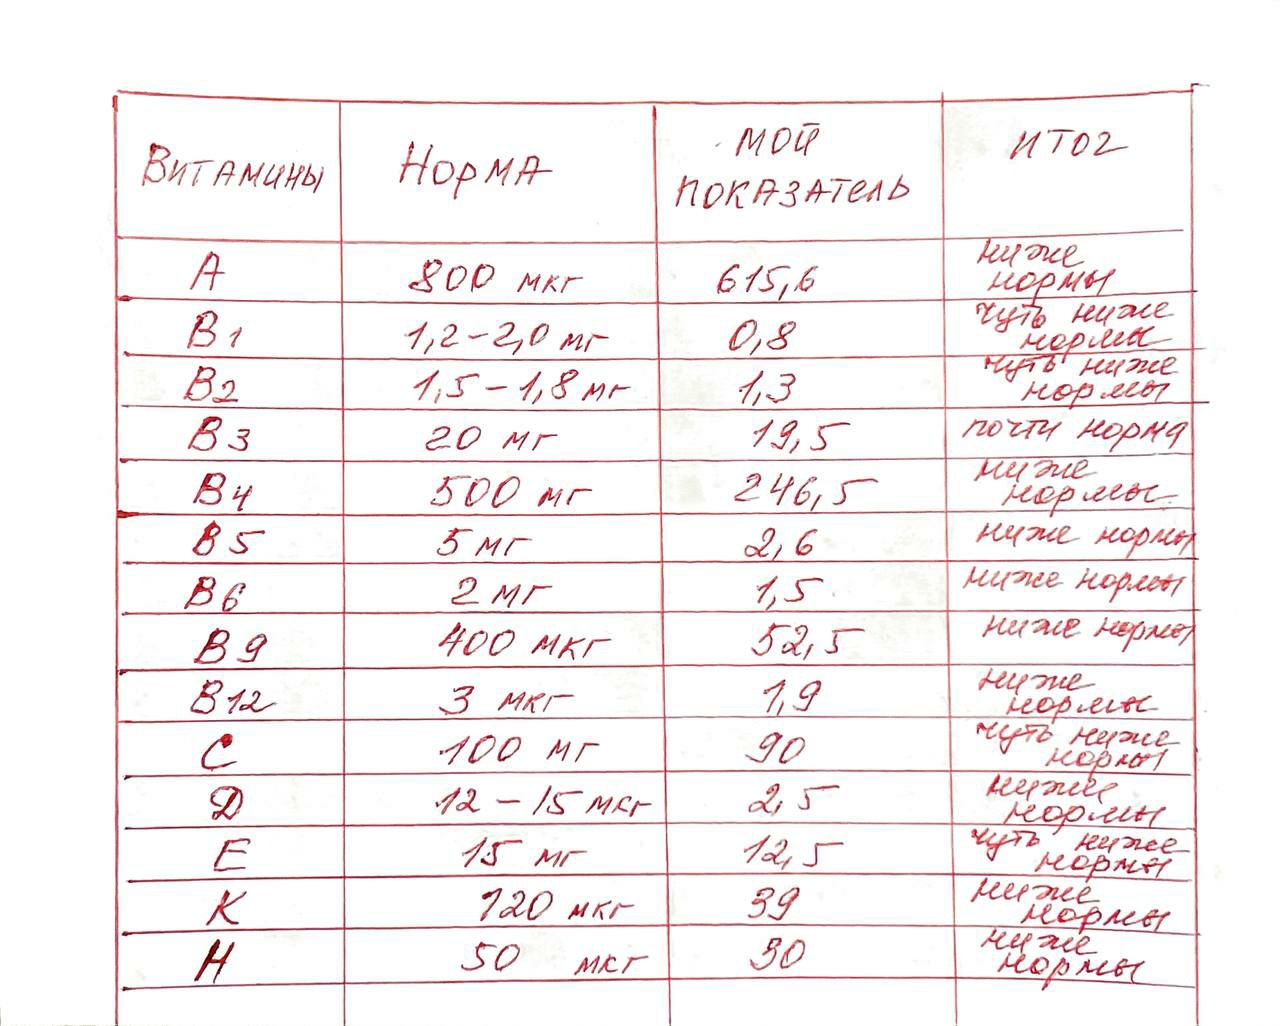 Витамины Норма мой показатель итог
А 800 мкг 615,6 ниже нормы
В1 1,2-2,0 мг 0,8 чуть ниже нормы
В2 1,5-1,8 мг 1,3 чуть ниже нормы
В3 20 мг 19,5 почти норма
В4 500 мг 246,5 ниже нормы
В5 5 мг 2,6 ниже нормы
В6 2 мг 1,5 ниже нормы
В9 400 мкг 52,5 ниже нормы
В12 3 мкг 1,9 ниже нормы
С 100 мг 90 чуть ниже нормы
Д 12-15 мкг 2,5 ниже нормы
Е 15 мг 12,5 чуть ниже нормы
К 120 мкг 39 ниже нормы
Н 50 мкг 30 ниже нормы